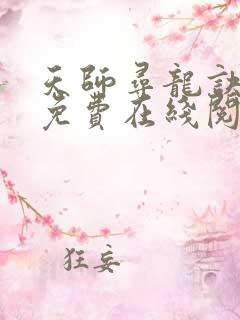 天師尋龍訣
免費在綫閱
狂妄